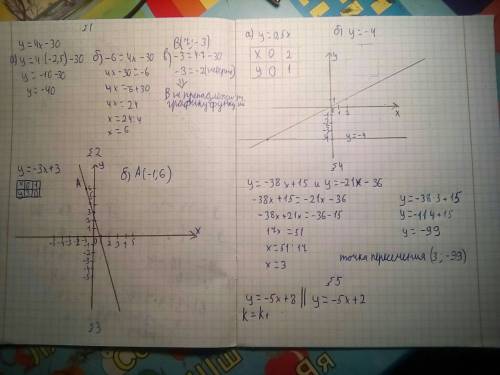 №1
y=4x-30
а) y=4·(-2,5)-30
y=-10-30
y=-40
б) -6=4x-30
4x-30=-6
4x=-6+30
4x=24
x=24:4
x=6
B(7;-3)
в) -3=4·7-30
-3=-2(неверно)
⇓
B не принадлежит
графику функции
№2
y=-3x+3
б) A(-1,6)
A
y
x
0
№3
а) y=0,5x
x 0 2
y 0 1
б) y=-4
y
x
y=-4
№4
y=-38x+15 и y=-21x-36
-38x+15=-21x-36
-38x+21x=-36-15
17x=51
x=51:17
x=3
y=-38·3+15
y=-114+15
y=-99
точка пересечения (3; -99)
№5
y=-5x+8 || y=-5x+2
k=k₁